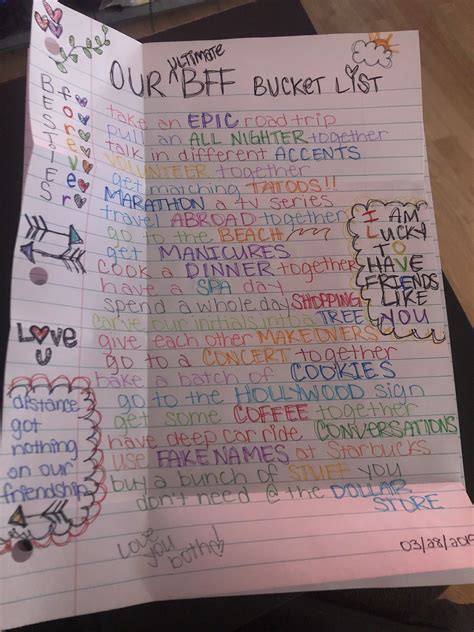 OUR ULTIMATE BFF BUCKET LIST
BESTIES
Forever
take an EPIC road trip
pull an ALL NIGHTER together
talk in different ACCENTS
VOLUNTEER together
get matching TATOOS!!
MARATHON a tv series
travel ABROAD together
go to the BEACH
get MANICURES
cook a DINNER together
have a SPA day
spend a whole day SHOPPING
carve our initials into a TREE
give each other MAKEOVERS
go to a CONCERT together
bake a batch of COOKIES
go to the HOLLYWOOD sign
get some COFFEE together
have deep car ride CONVERSATIONS
use FAKE NAMES at Starbucks
buy a bunch of STUFF you
don't need @ the DOLLAR
STORE
I AM
LUCKY
TO
HAVE
FRIENDS
LIKE
YOU
LOVE
U
distance
got
nothing
on our
friendship
love
you
both
03/28/2019